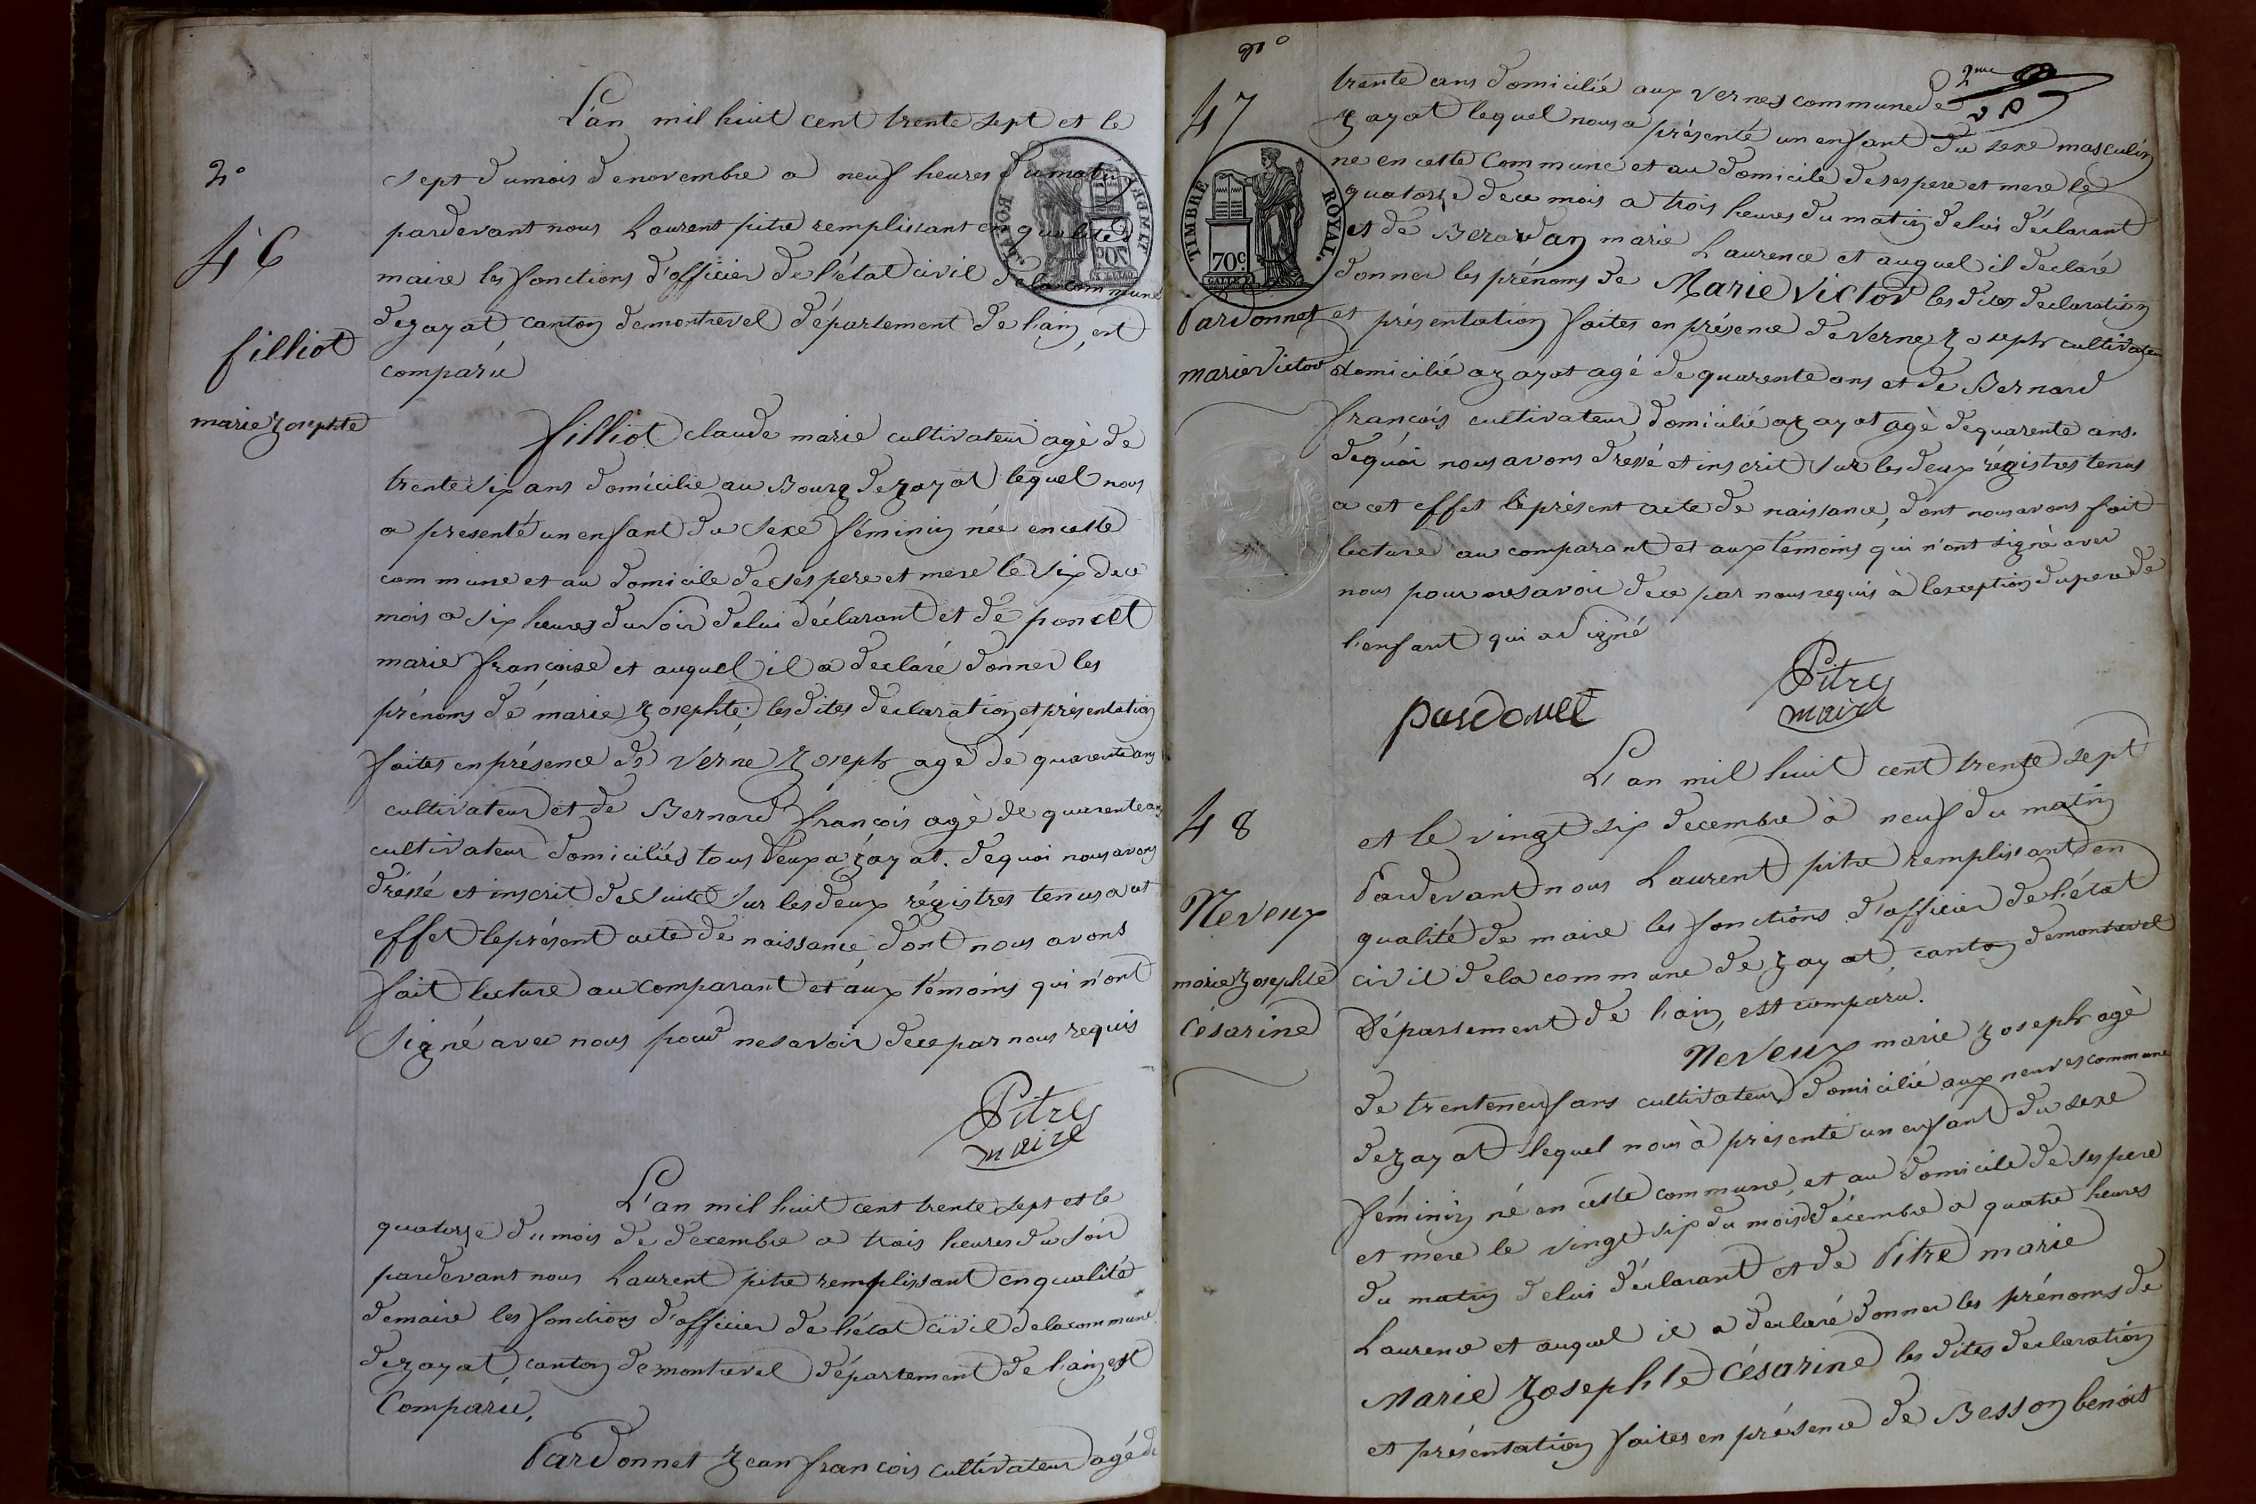 L'an mil huit cent trente sept et le
n°
46
filliot
marie zosephte
sept dumois denovembre a neuf heures dumatin
pardevant nous Laurent pitre remplissant en qualité de
maire les fonctions d'officier de l'état civil de la commune
dezayat canton demontrevel département de l'ain, est
comparu
filliot claude marie cultivateur agé de
trente six ans domicilié au Bourg de zayat lequel nous
a presenté un enfant du sexe féminin née en cette
commune et au domicile de ses pere et mere le six de ce
mois a six heures du soir de lui déclarant et de poncet
marie françoise et auquel il a declaré donner les
prénoms de marie zosephte. les dites declaration et présentation
faites en présence de verne zoseph agé de quarente ans
cultivateur et de Bernard françois agé de quarente ans
cultivateur domiciliés tous deux a zayat. de quoi nous avons
dréssé et inscrit de suite sur les deux régistres tenus a cet
effet le présent acte de naissance, dont nous avons
fait lecture au comparant et aux temoins qui n'ont
signé avec nous pour ne savoir de ce par nous requis
Pitre
maire
L'an mil huit cent trente sept et le
quatorze du mois de decembre a trois heures du soir
pardevant nous Laurent pitre remplissant en qualité
de maire les fonctions d'officier de l'état civil de la commune
de zayat canton de montrevel département de l'ain, est
Comparu,
Pardonnet zean françois cultivateur agé de
n°
47
Pardonnet
marie victor
2me
TIMBRE ROYAL
70c
trente ans domicilié aux vernes commune de
zayat lequel nous a présenté un enfant du sexe masculin
ne en cette Commune et au domicile de ses pere et mere le
quatorze de ce mois a trois heures du matin de lui déclarant
et de Berardan marie Laurence et auquel il declaré
donner les prénoms de Marie Victor les dites declaration
et présentation faites en présence de verne zoseph cultivateur
domicilié a zayat agé de quarente ans et de Bernard
françois cultivateur domicilié a zayat agé de quarente ans.
de quoi nous avons dressé et inscrit sur les deux régistres tenus
a cet effet le présent acte de naissance, dont nous avons fait
lecture au comparant et aux temoins qui n'ont signé avec
nous pour ne savoir de ce par nous requis à l'exception du pere de
l'enfant qui a signé
pardonet
Pitre
maire
48
Neveux
marie zosephte
Césarine
L'an mil huit cent trente sept
et le vingt six decembre à neuf du matin
Pardevant nous Laurent pitre remplissant en
qualité de maire les fonctions d'officier de l'état
civil de la commune de zayat, canton de montrevel
Département de l'ain, est comparu.
Neveux marie zoseph agé
de trente neuf ans cultivateur domicilié aux neuves commune
de zayat lequel nous à présenté un enfant du sexe
féminin né en cette commune, et au domicile de ses pere
et mere le vingt six du mois décembre a quatre heures
du matin de lui déclarant et de Pitre marie
Laurence et auquel il a declaré donner les prénoms de
Marie zosephte Césarine les dites declaration
et présentation faites en présence de Besson benoit